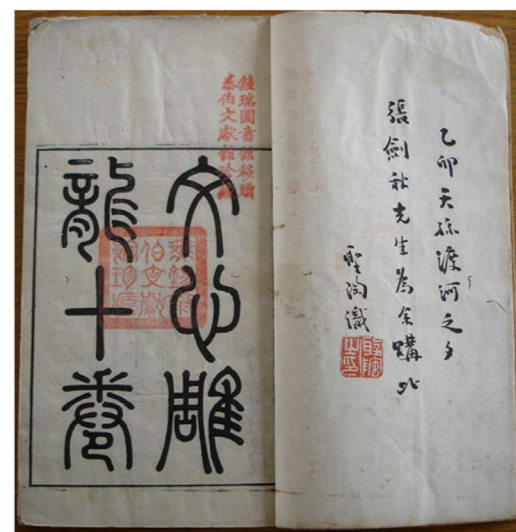 乙卯天孫渡河之夕
張劍秋先生為余購此
聖陶識
鐘瑞圖書館移贈
泰伯文獻館珍藏
文心雕
龍十卷